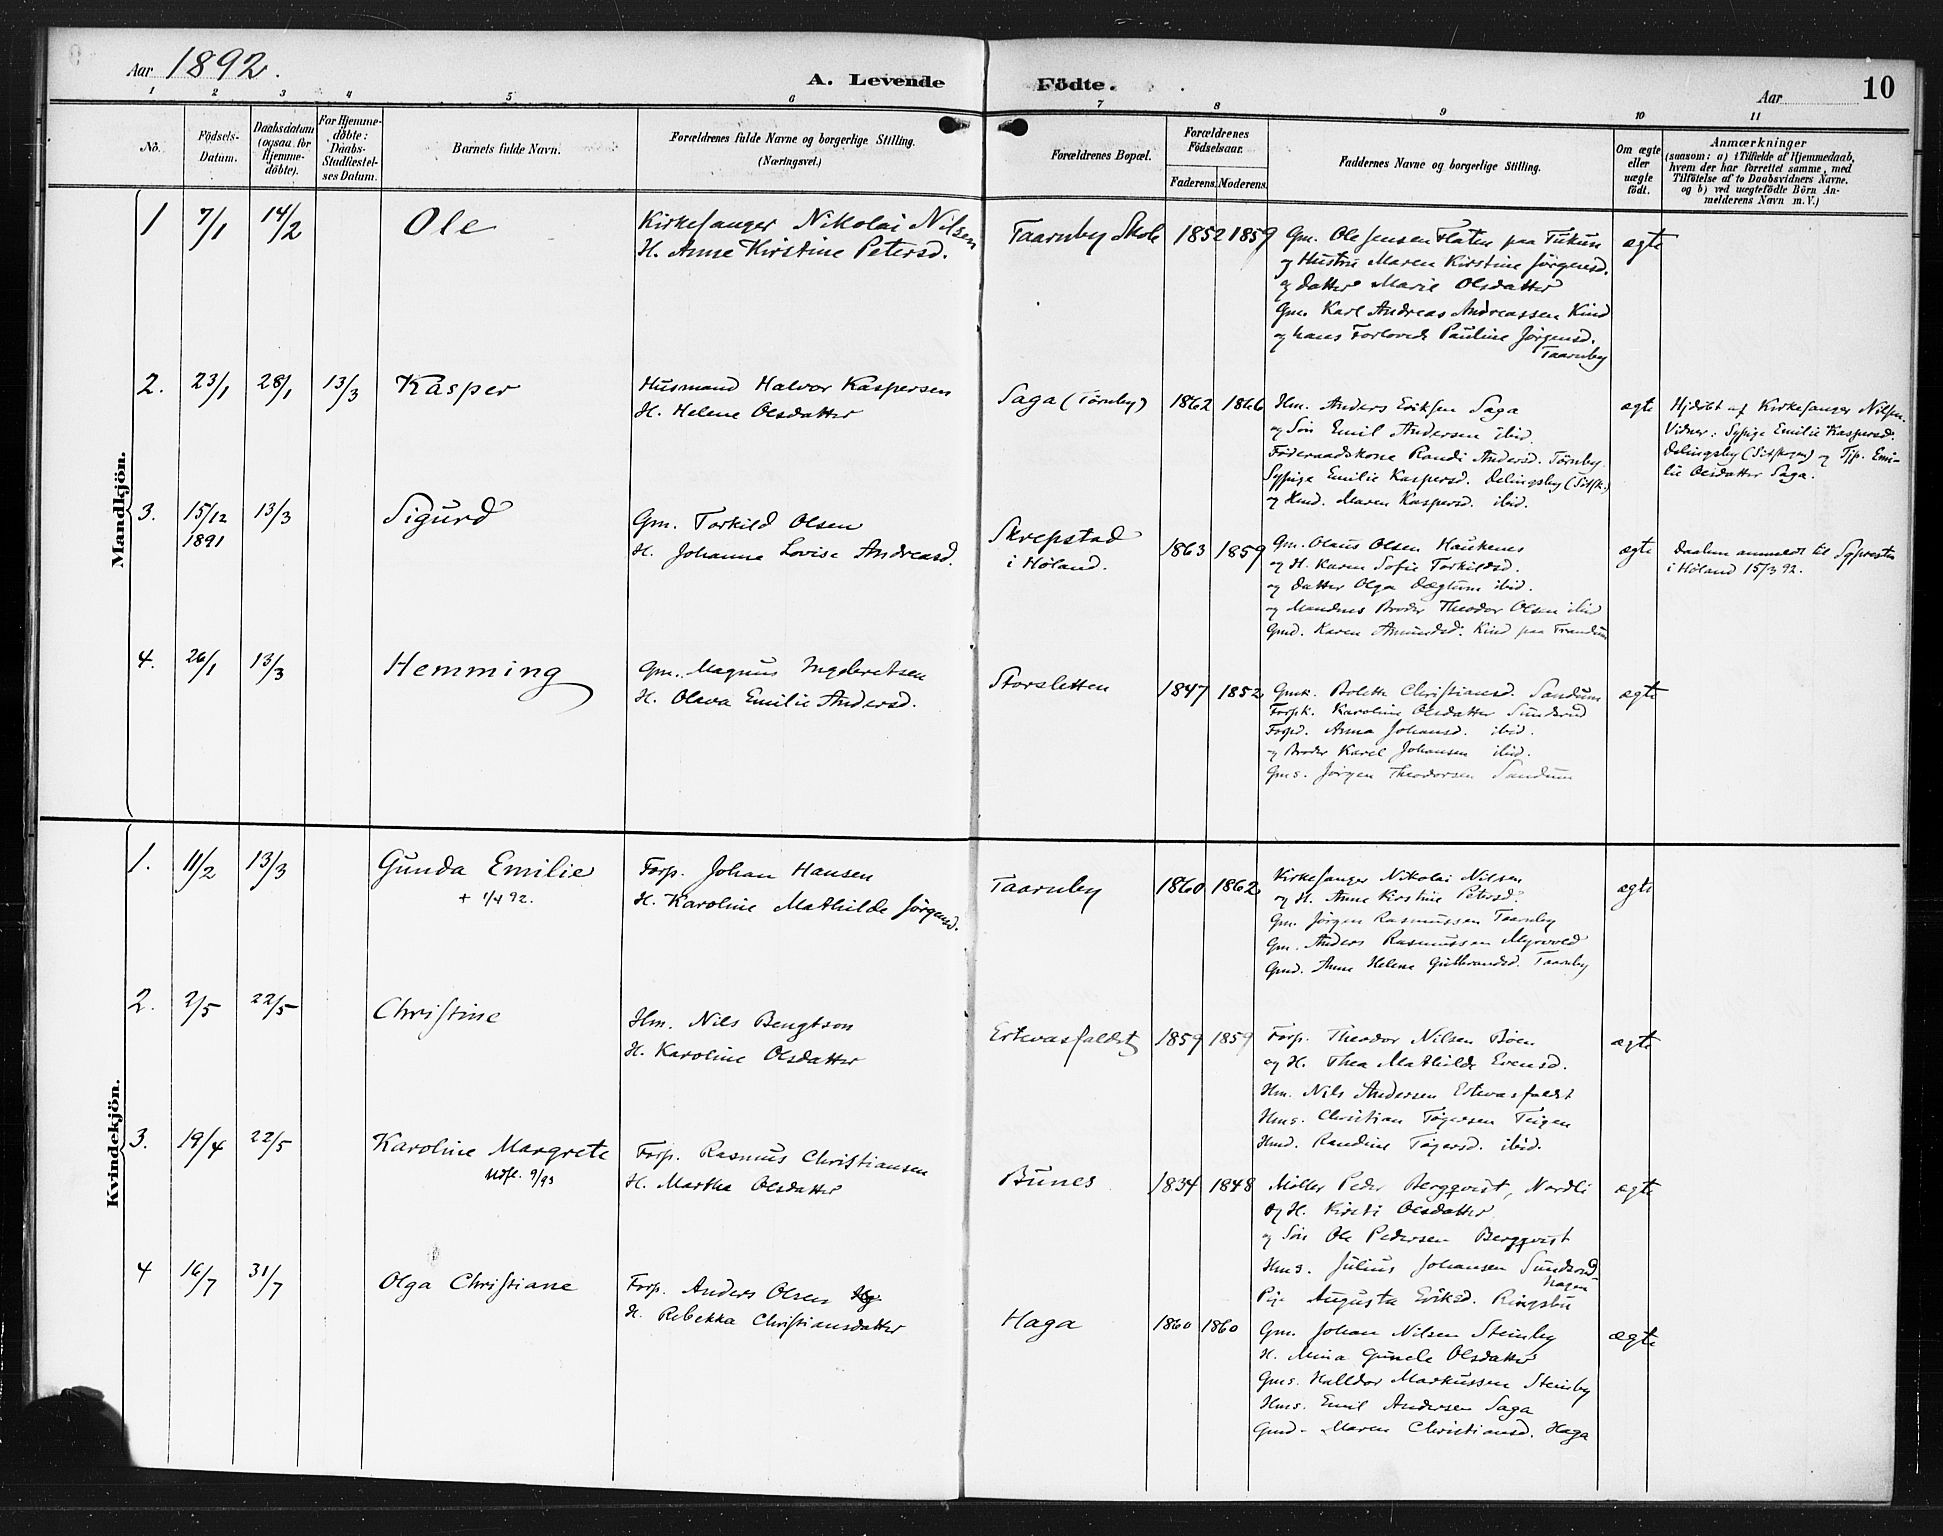 Aar 1892.
A. Levende Födte.
Aar 10
1 2 3 4 5 6 7 8 9 10 11
No.
Födsels-
Datum.
Daabsdatum
(ogsaa for
Hjemme-
döbte).
For Hjemme-
döbte:
Daabs-
Stadfæstel-
ses Datum.
Barnets fulde Navn.
Forældrenes fulde Navne og borgerlige Stilling.
(Næringsvei.)
Forældrenes Bopæl.
Forældrenes
Födselsaar.
Faderens. Moderens.
Faddernes Navne og borgerlige Stilling.
Om ægte
eller
uægte
födt.
Anmærkninger
(saasom: a) i Tilfælde af Hjemmedaab,
hvem der har forrettet samme, med
Tilföielse af to Daabsvidners Navne.
og b) ved uægtefödte Börn An-
melderens Navn m. V.)
Mandkjön.
1 7/1 14/2 Ole
Kirkesanger Nikolai Nilsen
H. Anne Kirstine Petersd.
Taarnby Skole 1852 1859
Gm. Ole Jensen Flaten paa
og Hustru Maren Kirstine Jørgensd.
og datter Marie Olsdatter
Gm. Karl Andreas Andreassen Kind
og hans Forlovede Pauline Jørgensd.
Taarnby
ægte
2. 23/1 28/1 13/3 Kasper
Husmand Halvor Kaspersen
H. Helene Olsdatter
Saga (Tørnby) 1862 1866
Hm. Anders Eriksen Saga
og Søn Emil Andersen ibid.
Føderaadskone Randi Andersd. Tørnby
Sypige Emilie Kaspersd. Delingsby (Setsk.)
og Hmd. Maren Kaspersd. ibid.
ægte
Hjdøbt af Kirkesanger Nilsen.
Vidner: Sypige Emilie Kaspersd.
Delingsby (Setskogen) og Tjp. Emi-
lie Olsdatter Saga.
3. 15/12 1891 13/3 Sigurd
Gm. Torkild Olsen
H. Johanna Lovise Andreasd.
Skrepstad
i Høland.
1863 1859
Gm. Olaus Olsen Haukenes
og H. Karen Sofie Torkildsd.
og Datter Olga Dægtum ibid.
og Mandens Broder Theodor Olsen ibid
Gmd. Karen Amundsd. Kind paa Trandum
ægte
Daaben anmeldt til Sgpresten
i Høland 15/3 92.
4. 26/1 13/3 Hemming
Gm. Magnus Ingebretsen
H. Olava Emilie Andersd.
Storsletten 1847 1852
Gmk. Bolette Christiansd. Sandum
Forpk. Karoline Olsdatter Sundsrud
Forpd. Anna Johansd. ibid.
og Broder Karel Johansen ibid.
Gms. Jørgen Theodorsen Sandum
ægte
Kvindekjön.
1. 11/2 13/3 Gunda Emilie
+ 1/4 92.
Forp. Johan Hansen
H. Karoline Mathilde Jørgensd.
Taarnby 1860 1862
Kirkesanger Nikolai Nilsen
og H. Anne Kirstine Petersd.
Gm. Jørgen Rasmussen Taarnby
Gm. Anders Rasmussen Myrvold
Gmd. Anne Helene Gulbrandsd. Taarnby
ægte
2. 2/5 22/5 Christine
Hm. Nils Bengtson
H. Karoline Olsdatter
Ertevasfaldet 1859 1859
Forp. Theodor Nilsen Bøen
og H. Thea Mathilde Evensd.
Hm. Nils Andersen Ertevasfaldet
Hms. Christian Tøgersen Teigen
Hmd. Randine Tøgersd. ibid.
ægte
3. 19/4 22/5 Karoline Margrete
Udfl. 9/93
Forp. Rasmus Christiansen
H. Martha Olsdatter
Bunes 1834 1848
Møller Peder Bergqvist, Nordli
og H. Kirsti Olsdatter
og Søn Ole Pedersen Bergqvist
Hms. Julius Johansen Sundsrud-
hagen
Pige Augusta Eriksd. Ringsbu
ægte
4 16/7 31/7 Olga Christiane
Forp. Anders Olsen
H. Rebekka Christiansdatter
Haga 1860 1860
Gm. Johan Nilsen Steinby
H. Mina Gunele Olsdatter
Gms. Halldor Markussen Steinby
Hms. Emil Andersen Saga
Gmd. Maren Christiansd. Haga
ægte